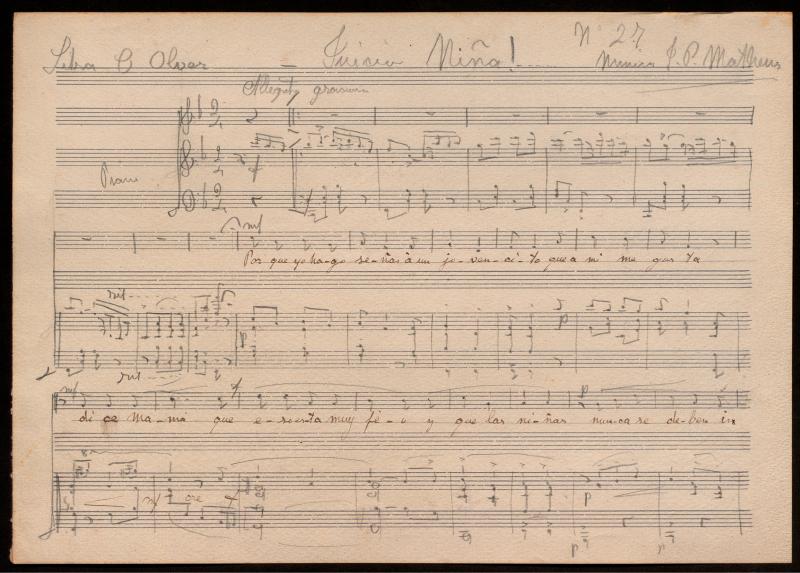 Nº 27
Letra C Oliver — Juicio Niña!.... Musica J. P. Matheu
Allegtto grazioso
Piano
mf
Por que yo ha-go se-ñas à un jo-ven-ci-to que a mi me gus ta
rit
p p
rit
mf f p
di ce Ma-má que e-so es-ta muy fe-o y que las ni-ñas nun-ca se de-ben in
mf cre f p
p p